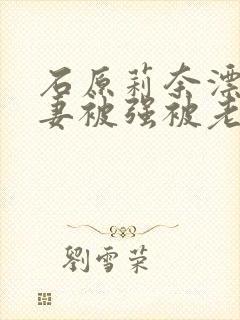 石原莉奈漂
妻被强被老
劉雪荣